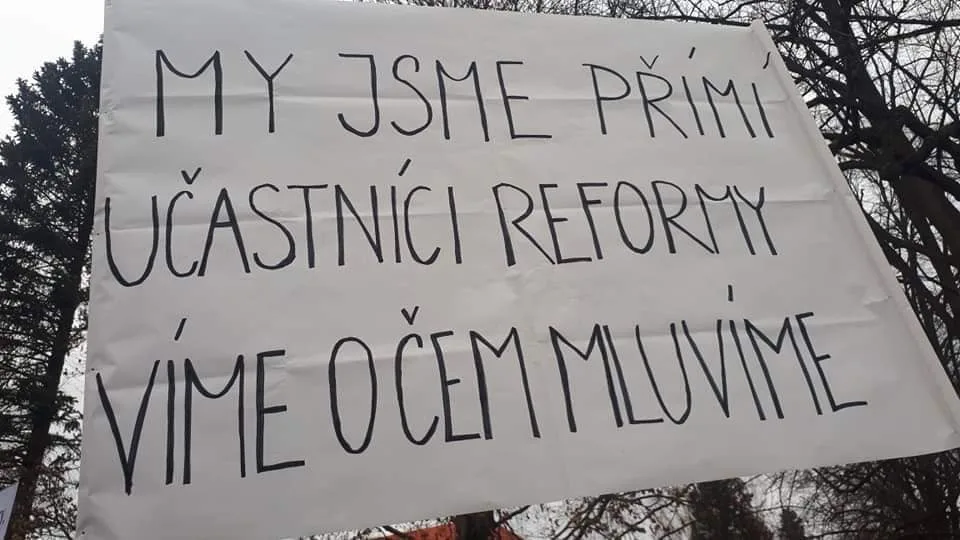 MY JSME PŘÍMÍ
UČASTNÍCI REFORMY
VÍME O ČEM MLUVÍME